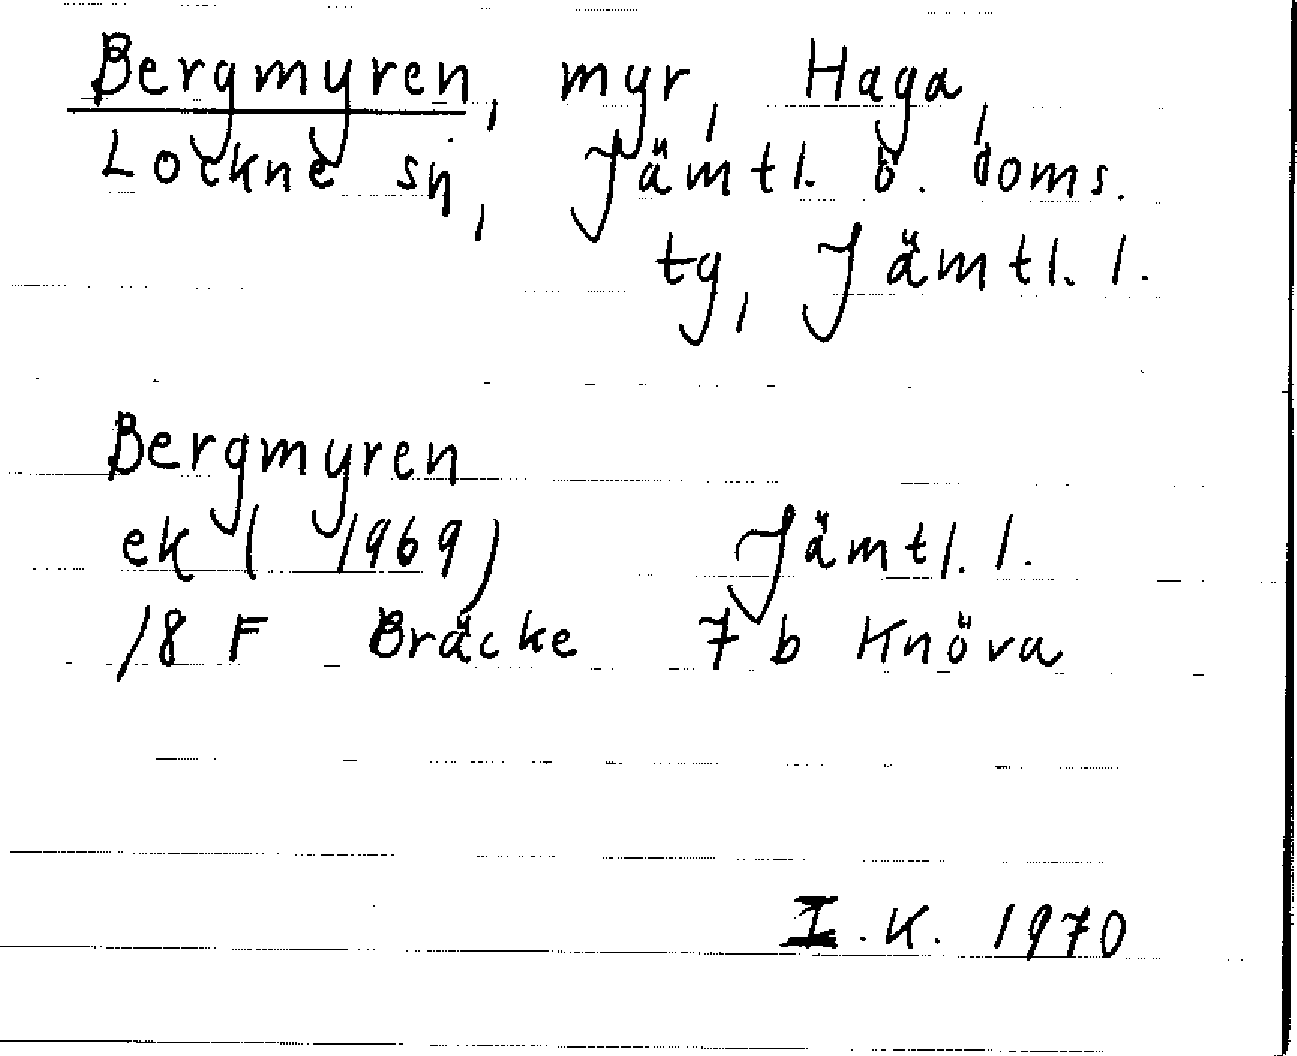 Bergmyren, myr, Haga,
Lockne sn, Jämtl. ö. doms.
tg, Jämtl. l.
Bergmyren
ek (1969) Jämtl. l.
18 F Bräcke 7 b Knöva
I.K. 1970